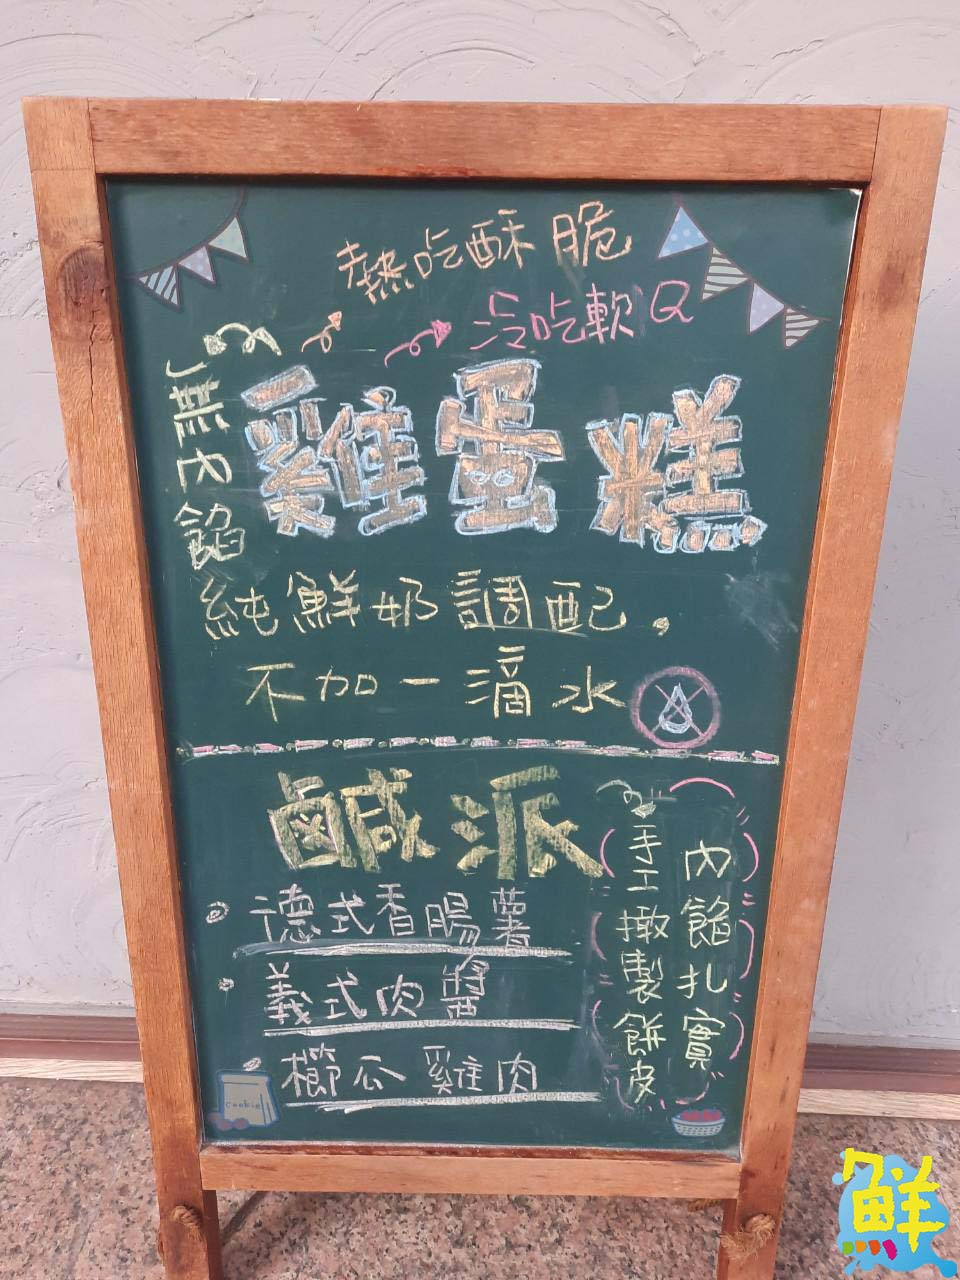 熱吃酥脆
冷吃軟Q
無內餡
雞蛋糕
純鮮奶調配。
不加一滴水
鹹派
德式香腸薯
義式肉醬
櫛瓜雞肉
手工撖製餅皮
內餡扎實
Cookie
鮮